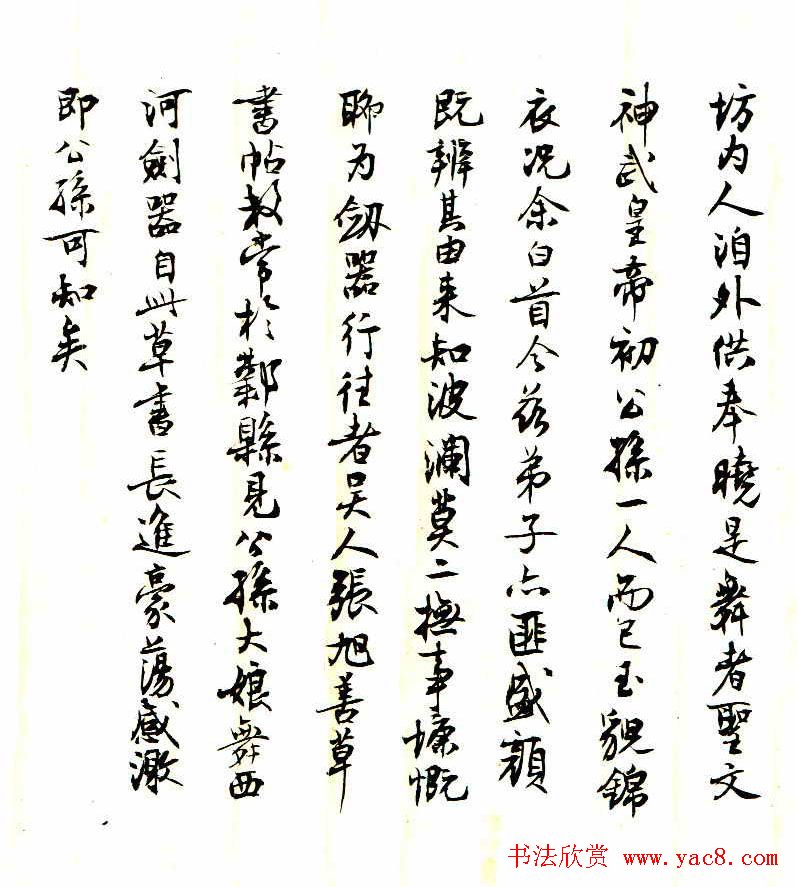 坊内人洎外供奉曉是舞者聖文
神武皇帝初公孫一人而已玉貌錦
衣况余白首今茲弟子亦匪盛顏
既辨其由来知波瀾莫二撫事慷慨
聊为劔器行往者吴人張旭善草
書帖数常於鄴縣見公孫大娘舞西
河劍器自此草書長進豪蕩感激
即公孫可知矣
书法欣赏 www.yac8.com